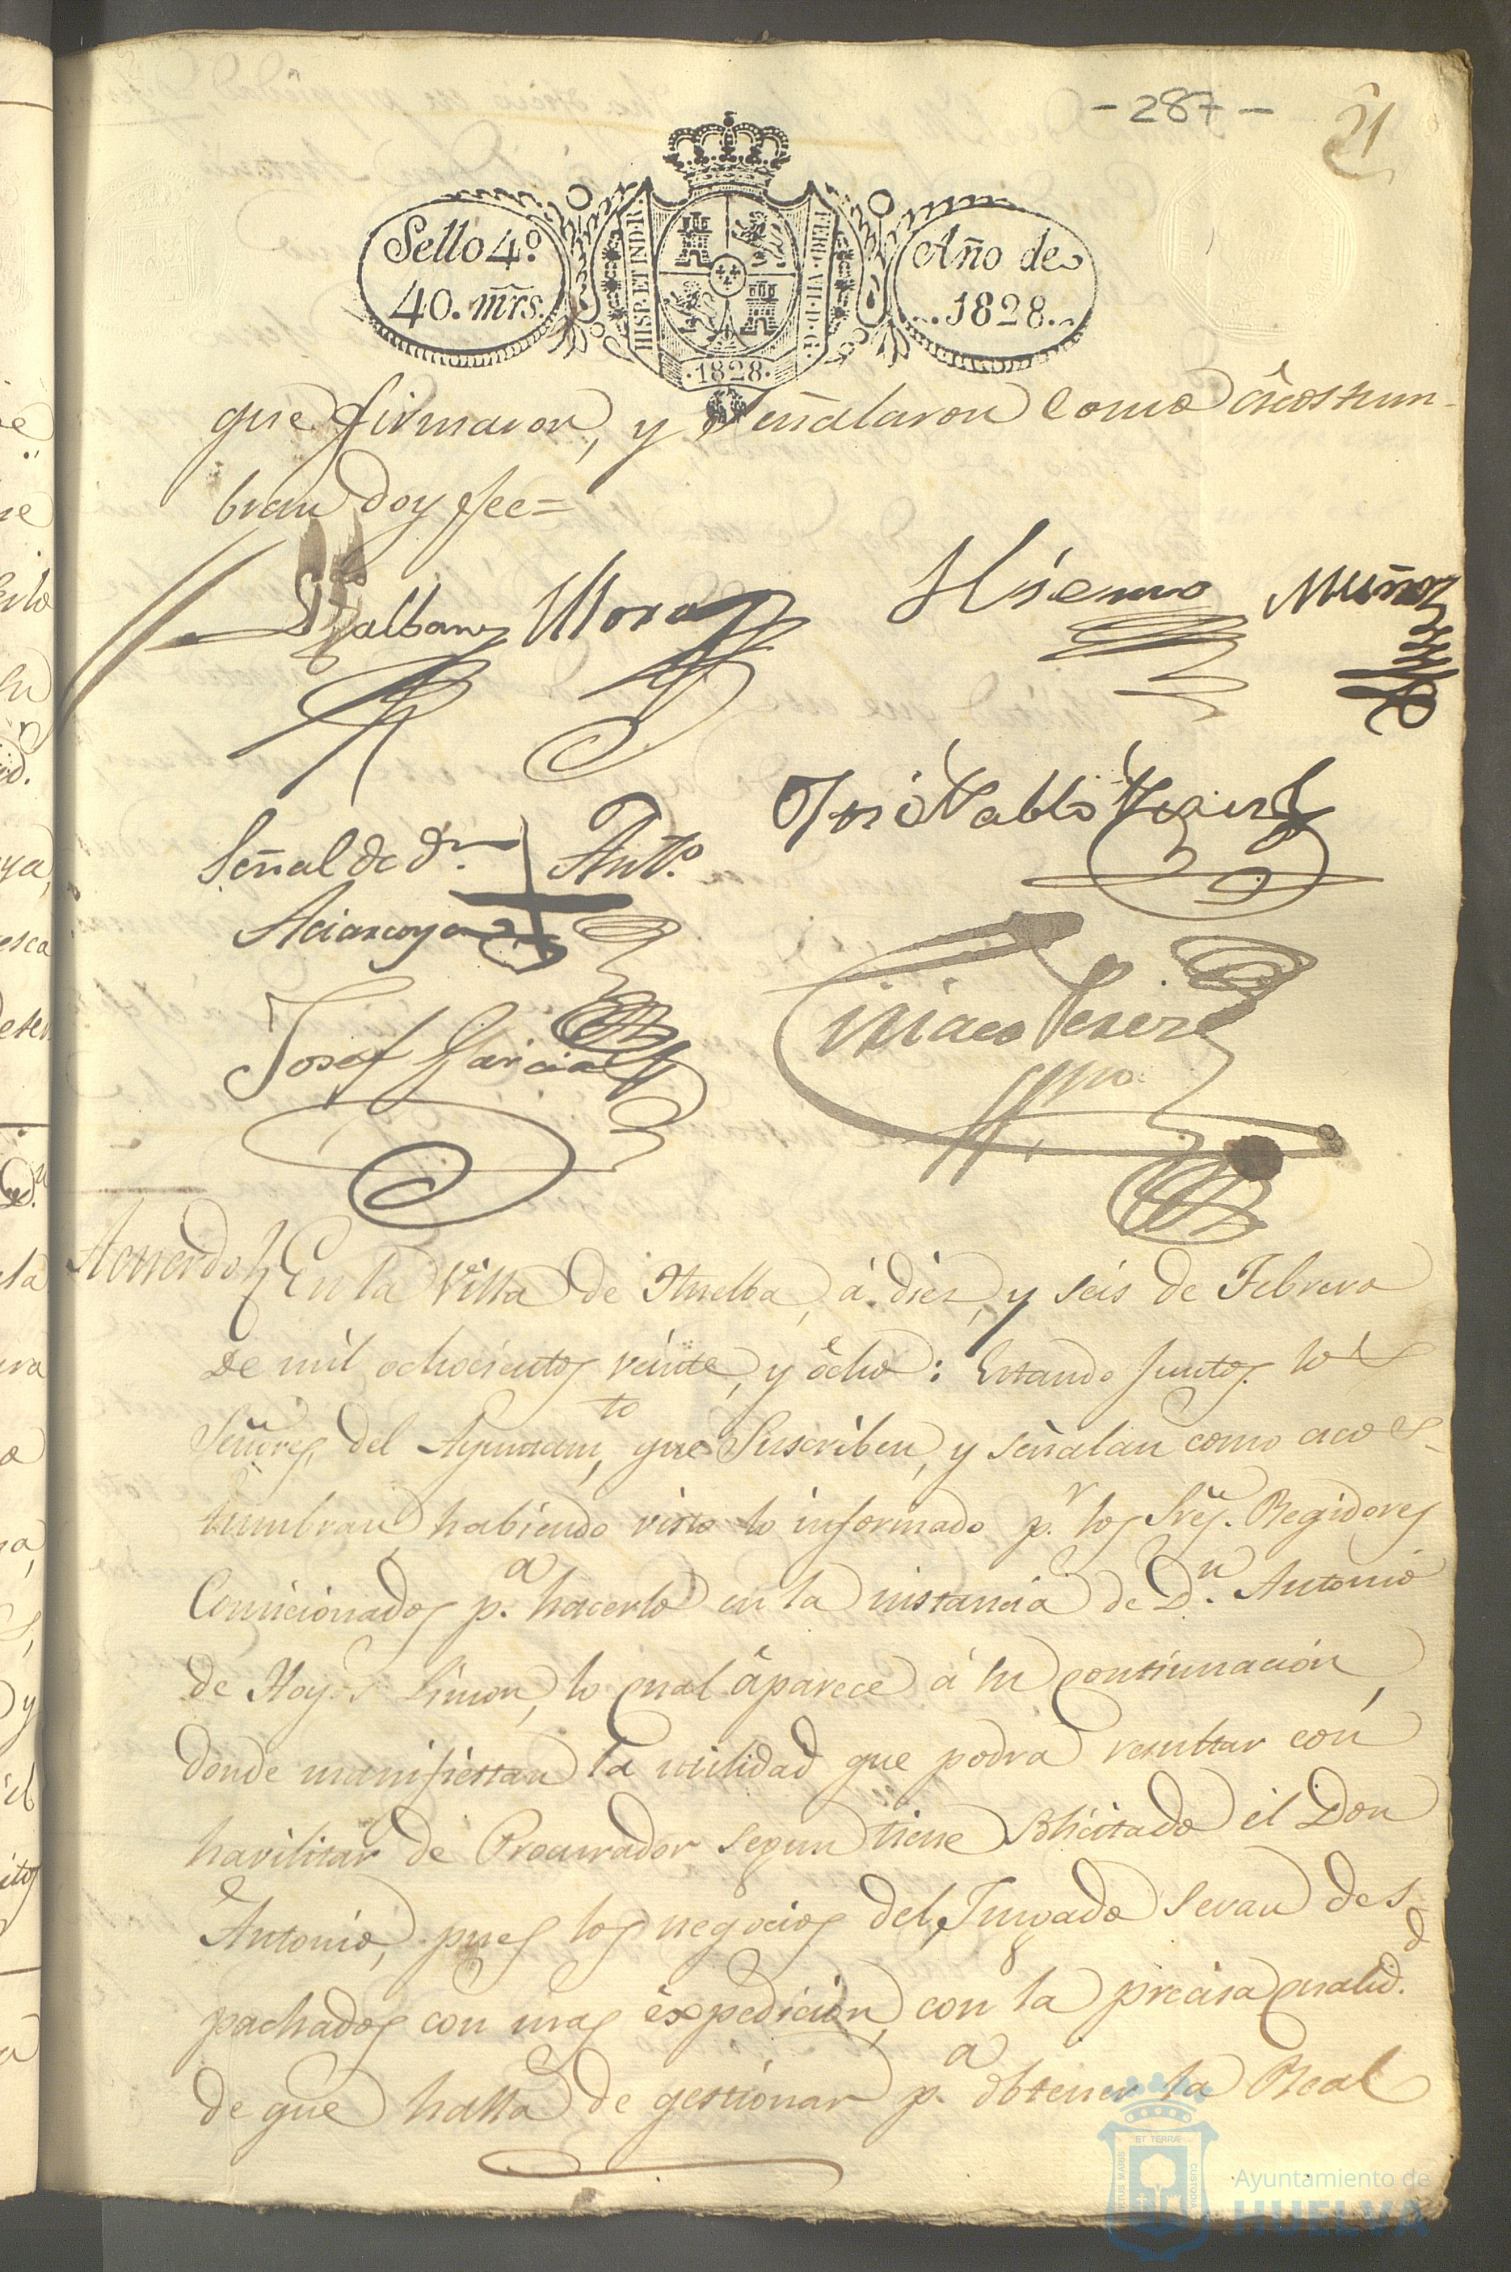 - 287 -
21
Sello 4º
40. mrs.
HISP. ET IND. R.
FERD. VII. D. G.
1828
Año de
1828
que firmaron, y Señalaron como acostum-
bran doy fee=
Mora
Muñoz
José Pablo Perez
Señal de Dn. + Antº.
Josef Garcia
Ciriaco Perez
Acuerdo
En la Villa de Huelba, á diez, y seis de Febrero
de mil ochocientos veinte, y ócho: Estando Juntos los
Señores del Ayuntamto, que Suscriben, y señalan como acos-
tumbran, habiendo visto lo informado pr. los Sres. Regidores
Comicionados pa. hacerlo en la instancia de Dn. Antonio
de Limon, lo qual áparece á su continuación,
donde manifiestan la utilidad que podra resultar con
havilitar de Procurador segun tiene solicitado él Don
Antonio, pues los negocios del Juzgado seran des-
pachados con mas éxpedición, con la precisa qualidd.
de que halla de gestionar pa. obtener la Real
Ayuntamiento de
HUELVA